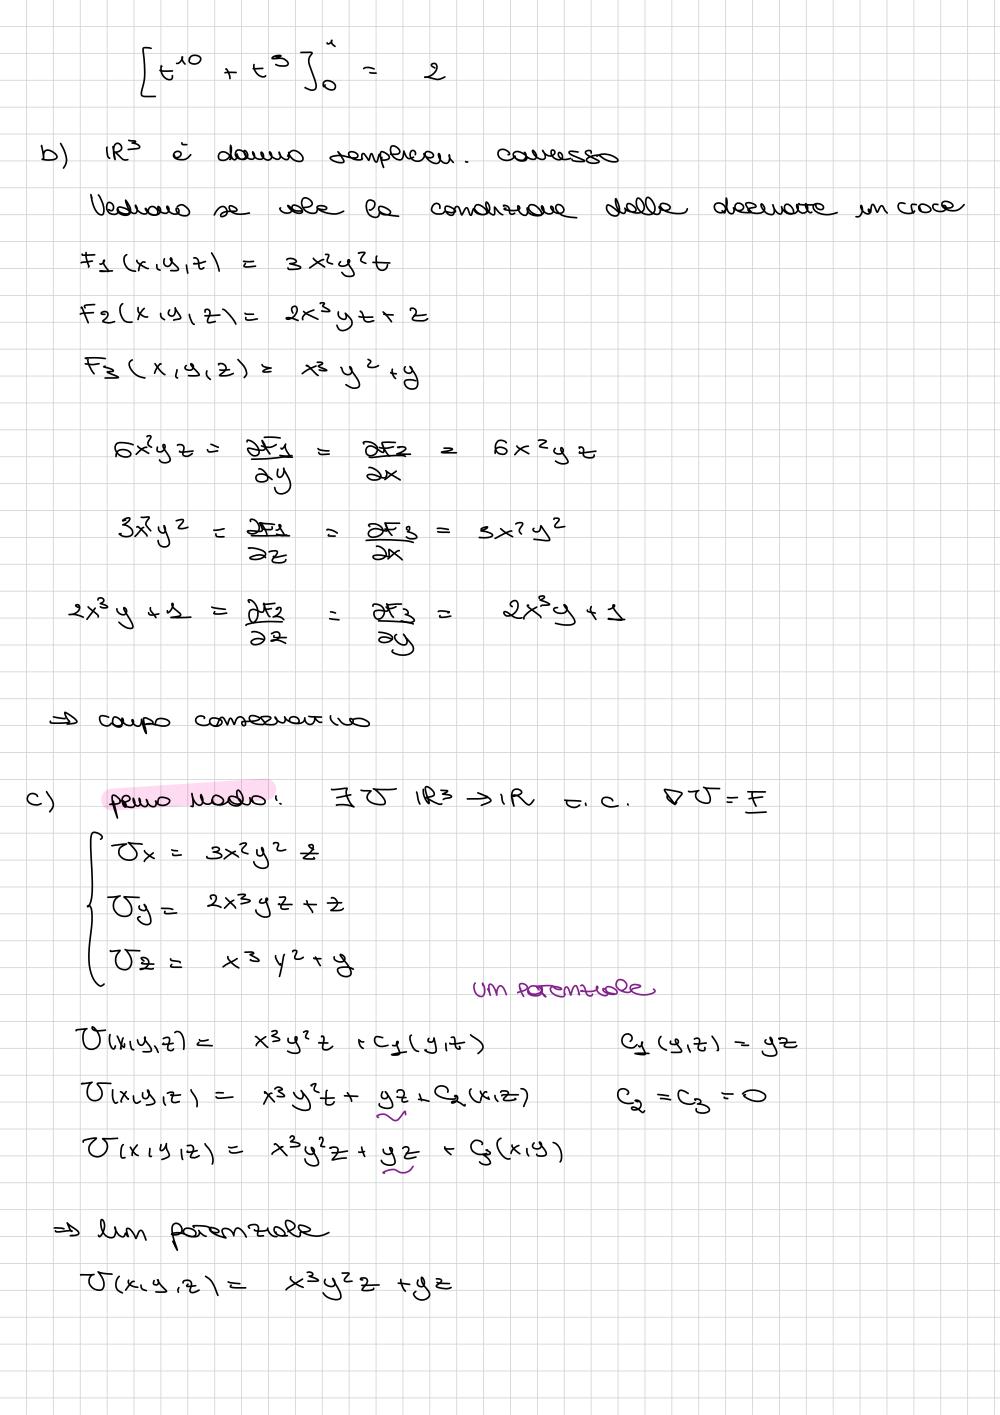 [t¹⁰ + t³]₀¹ = 2
b) ℝ³ è danno semplicem. connesso
Vediamo se vale la condizione delle derivate in croce
F1(x,y,z) = 3x²y²z
F2(x,y,z) = 2x³yz + z
F3(x,y,z) = x³y² + y
6x²yz = ∂F1/∂y = ∂F2/∂x = 6x²yz
3x²y² = ∂F1/∂z = ∂F3/∂x = 3x²y²
2x³y + 1 = ∂F2/∂z = ∂F3/∂y = 2x³y + 1
⇒ campo conservativo
c) primo modo: ∃ U ℝ³ → ℝ t.c. ∇U = F
Ux = 3x²y²z
Uy = 2x³yz + z
Uz = x³y² + y
un potenziale
U(x,y,z) = x³y²z + C1(y,z) C1(y,z) = yz
U(x,y,z) = x³y²z + yz + C2(x,z) C2 = C3 = 0
U(x,y,z) = x³y²z + yz + C3(x,y)
⇒ Un potenziale
U(x,y,z) = x³y²z + yz